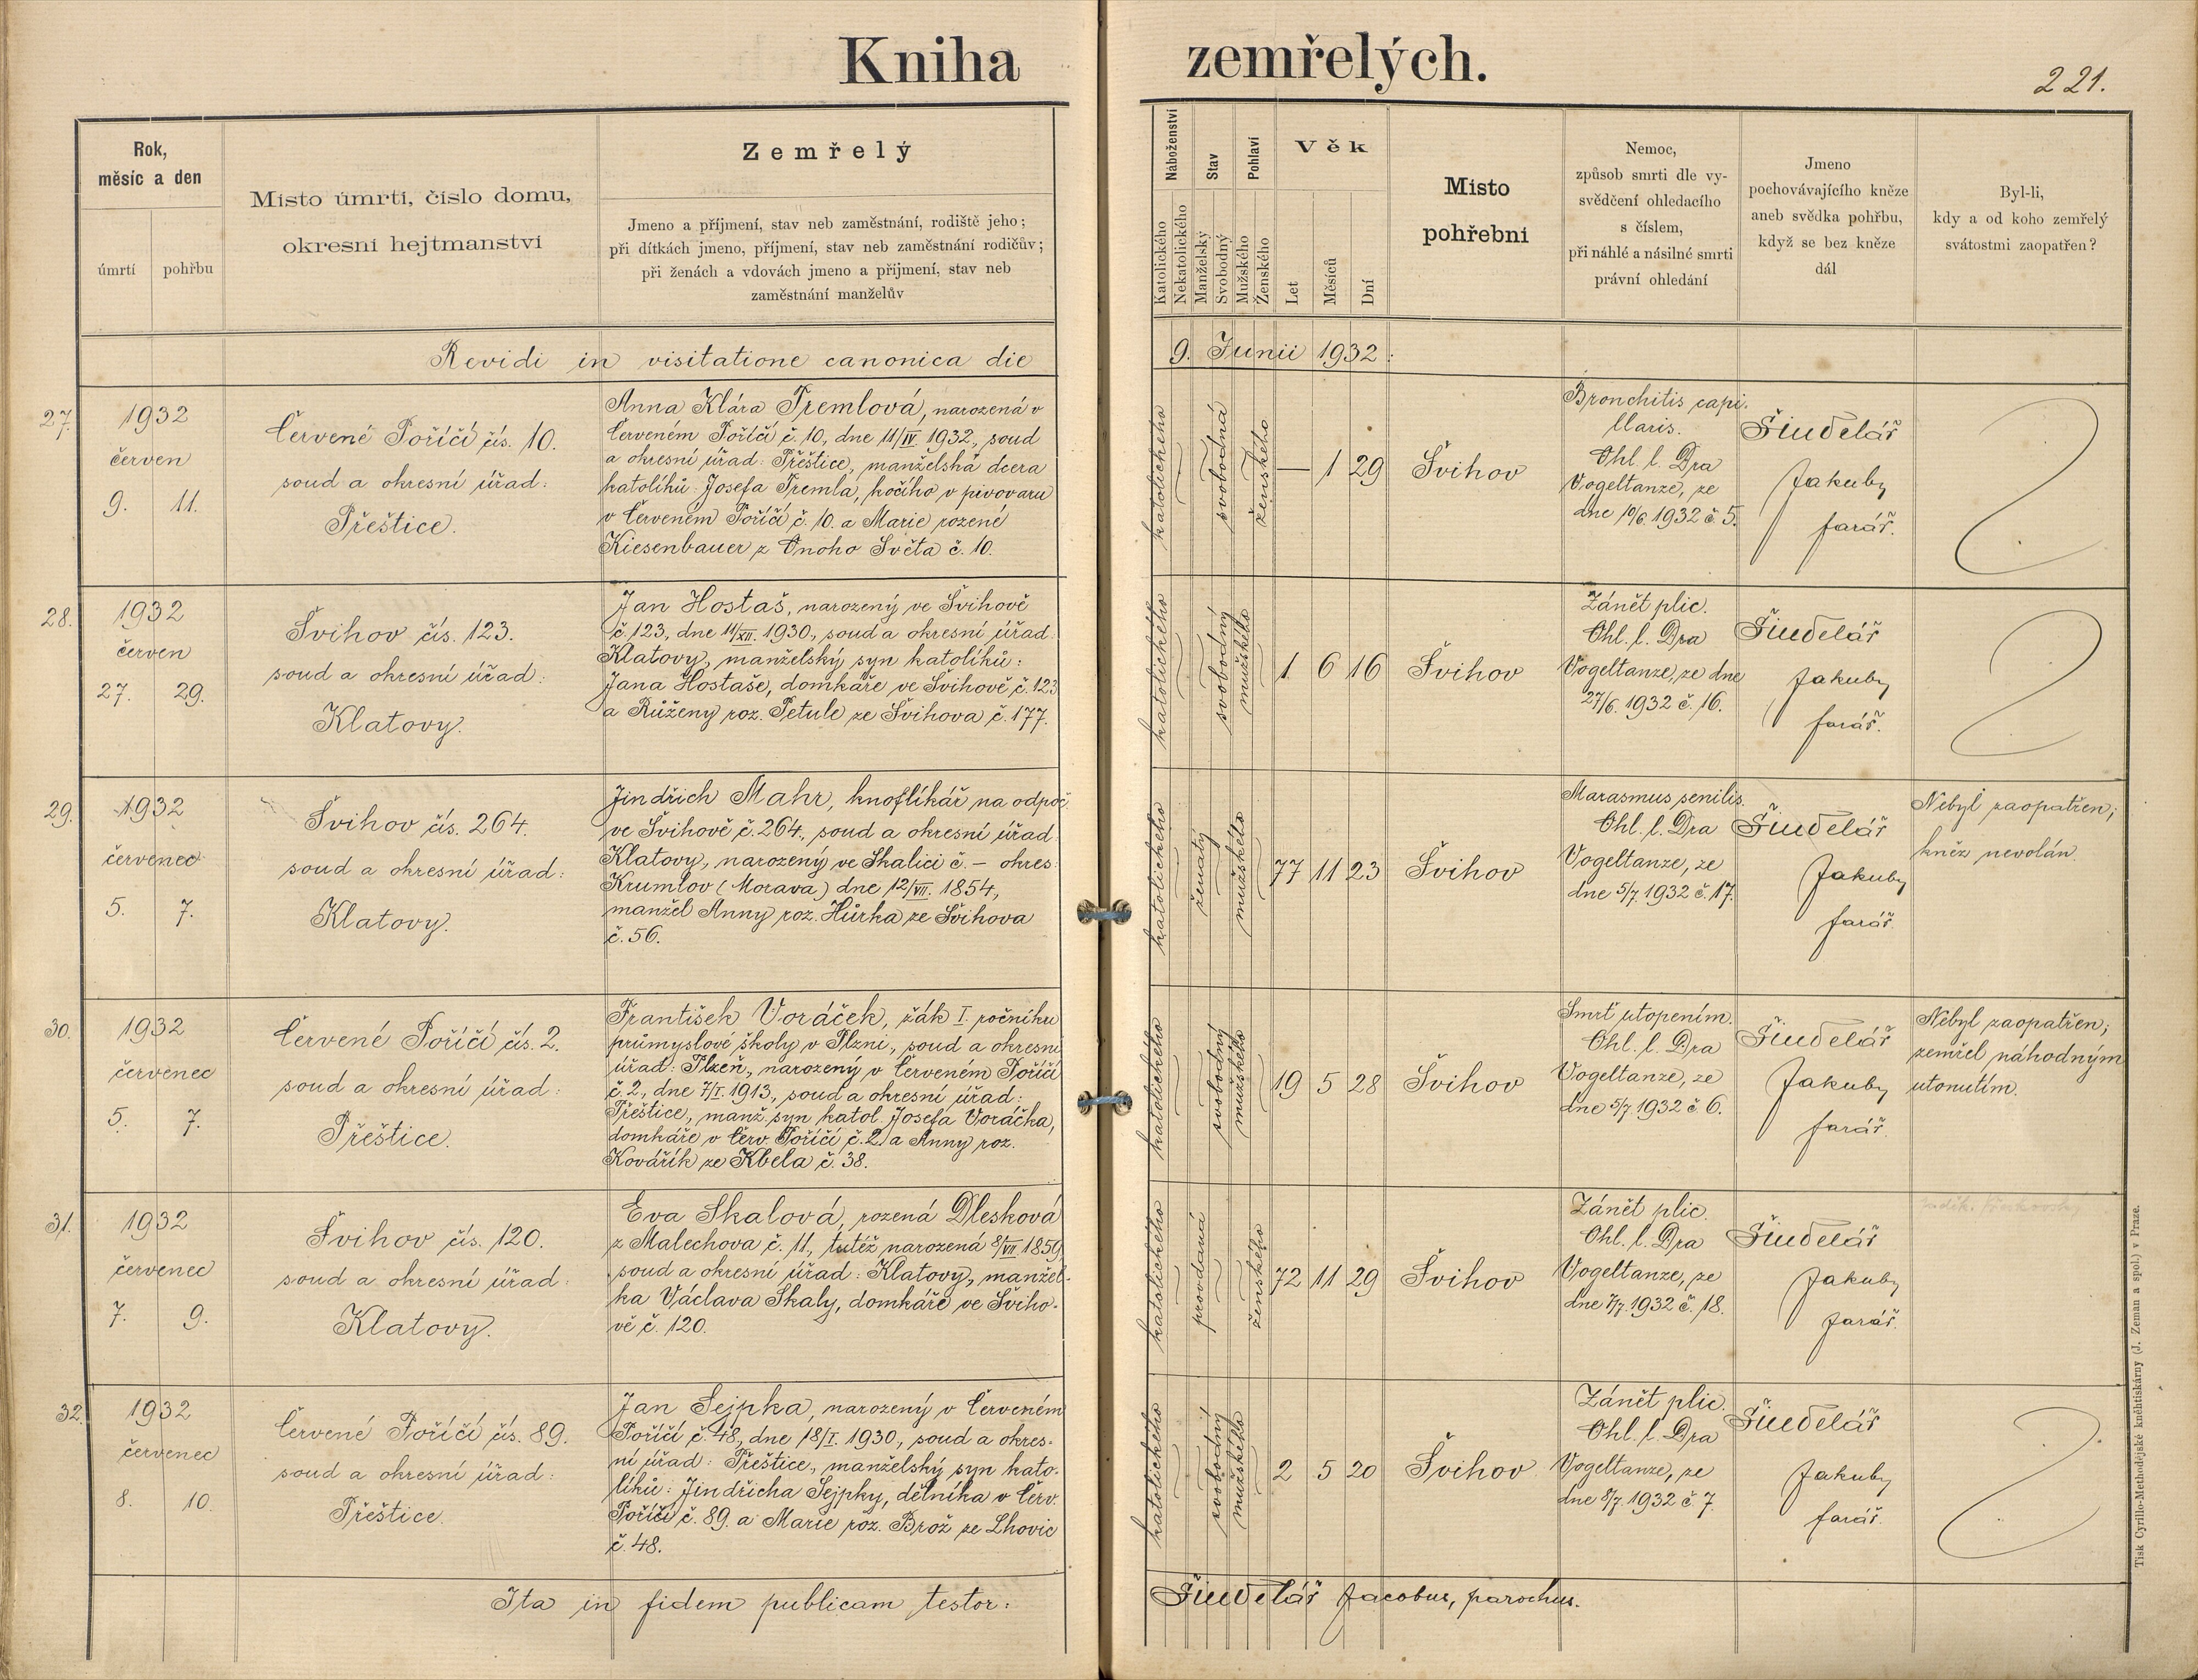 Kniha zemřelých.
221.
Rok,
měsíc a den
úmrtí
pohřbu
Místo úmrtí, číslo domu,
okresní hejtmanství
Zemřelý
Jmeno a příjmení, stav neb zaměstnání, rodiště jeho;
při dítkách jmeno, příjmení, stav neb zaměstnání rodičův;
při ženách a vdovách jmeno a příjmení, stav neb
zaměstnání manželův
Náboženství
Katolického
Nekatolického
Stav
Manželský
Svobodný
Pohlaví
Mužského
Ženského
Věk
Let
Měsíců
Dní
Místo
pohřební
Nemoc,
způsob smrti dle vy-
svědčení ohledacího
s číslem,
při náhlé a násilné smrti
právní ohledání
Jmeno
pochovávajícího kněze
aneb svědka pohřbu,
když se bez kněze
dál
Byl-li,
kdy a od koho zemřelý
svátostmi zaopatřen?
Revidi in visitatione canonica die 9. Junii 1932:
27.
1932
červen
9. 11.
Červené Poříčí čís. 10.
soud a okresní úřad:
Přeštice.
Anna Klára Tremlová, narozená v
Červeném Poříčí č. 10, dne 11/IV. 1932, soud
a okresní úřad: Přeštice, manželská dcera
katolíků: Josefa Tremla, kočího v pivovaru
v Červeném Poříčí č. 10. a Marie rozené
Kiesenbauer z Onoho Světa č. 10.
katolického
svobodná
ženského
— 1 29
Švihov
Bronchitis capi-
llaris.
Ohl. l. Dra
Vogeltanze, ze
dne 10/6. 1932 č. 5.
Šindelář
Jakub,
farář.
28.
1932
červen
27. 29.
Švihov čís. 123.
soud a okresní úřad:
Klatovy.
Jan Hostaš, narozený ve Švihově
č. 123, dne 11/XII. 1930, soud a okresní úřad
Klatovy, manželský syn katolíků:
Jana Hostaše, domkáře ve Švihově č. 123
a Růženy roz. Petule ze Švihova č. 177.
katolického
svobodný
mužského
1 6 16
Švihov
Zánět plic.
Ohl. l. Dra
Vogeltanze, ze dne
27/6. 1932 č. 16.
Šindelář
Jakub,
farář.
29.
1932
červenec
5. 7.
Švihov čís. 264.
soud a okresní úřad:
Klatovy.
Jindřich Mahr, knoflíkář na odpoč.
ve Švihově č. 264, soud a okresní úřad
Klatovy, narozený ve Skalici č. — okres:
Krumlov (Morava) dne 12/VII. 1854,
manžel Anny roz. Hůrka ze Švihova
č. 56.
katolického
ženatý
mužského
77 11 23
Švihov
Marasmus senilis.
Ohl. l. Dra
Vogeltanze, ze
dne 5/7. 1932 č. 17.
Šindelář
Jakub,
farář.
Nebyl zaopatřen;
kněz nevolán.
30.
1932
červenec
5. 7.
Červené Poříčí čís. 2.
soud a okresní úřad:
Přeštice.
František Voráček, žák I. ročníku
průmyslové školy v Plzni, soud a okresní
úřad: Plzeň, narozený v Červeném Poříčí
č. 2, dne 7/I. 1913, soud a okresní úřad:
Přeštice, manž. syn katol. Josefa Voráčka,
domkáře v Červ. Poříčí č. 2. a Anny roz.
Kovářík ze Kbela č. 38.
katolického
svobodný
mužského
19 5 28
Švihov
Smrt utopením.
Ohl. l. Dra
Vogeltanze, ze
dne 5/7. 1932 č. 6.
Šindelář
Jakub,
farář.
Nebyl zaopatřen;
zemřel náhodným
utonutím.
31.
1932
červenec
7. 9.
Švihov čís. 120.
soud a okresní úřad:
Klatovy.
Eva Skalová, rozená Dlesková
z Malechova č. 11, tutéž narozená 8/VII. 1859,
soud a okresní úřad: Klatovy, manžel-
ka Václava Skaly, domkáře ve Šviho-
vě č. 120.
katolického
provdaná
ženského
72 11 29
Švihov
Zánět plic.
Ohl. l. Dra
Vogeltanze, ze
dne 7/7. 1932 č. 18.
Šindelář
Jakub,
farář.
32.
1932
červenec
8. 10.
Červené Poříčí čís. 89.
soud a okresní úřad:
Přeštice.
Jan Sejpka, narozený v Červeném
Poříčí č. 48, dne 18/I. 1930, soud a okres-
ní úřad: Přeštice, manželský syn kato-
líků: Jindřicha Sejpky, dělníka v Červ.
Poříčí č. 89. a Marie roz. Brož ze Lhovic
č. 48.
katolického
svobodný
mužského
2 5 20
Švihov
Zánět plic.
Ohl. l. Dra
Vogeltanze, ze
dne 8/7. 1932 č. 7.
Šindelář
Jakub,
farář.
Ita in fidem publicam testor: Šindelář Jacobus, parochus.
Tisk Cyrillo-Methodějské knihtiskárny (J. Zeman a spol.) v Praze.